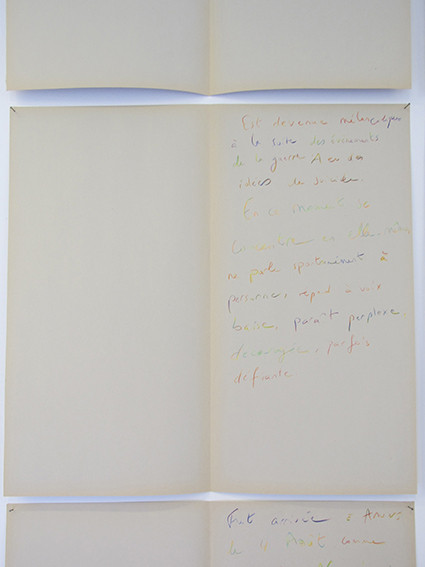 Est devenue mélancolique
à la suite des événements
de la guerre A eu des
idées de suicide.
En ce moment se
concentre en elle même
ne parle spontanément à
personne, répond à voix
basse, parait perplexe
découragée, parfois
défiante
Fut amenée à
le 4 Août comme